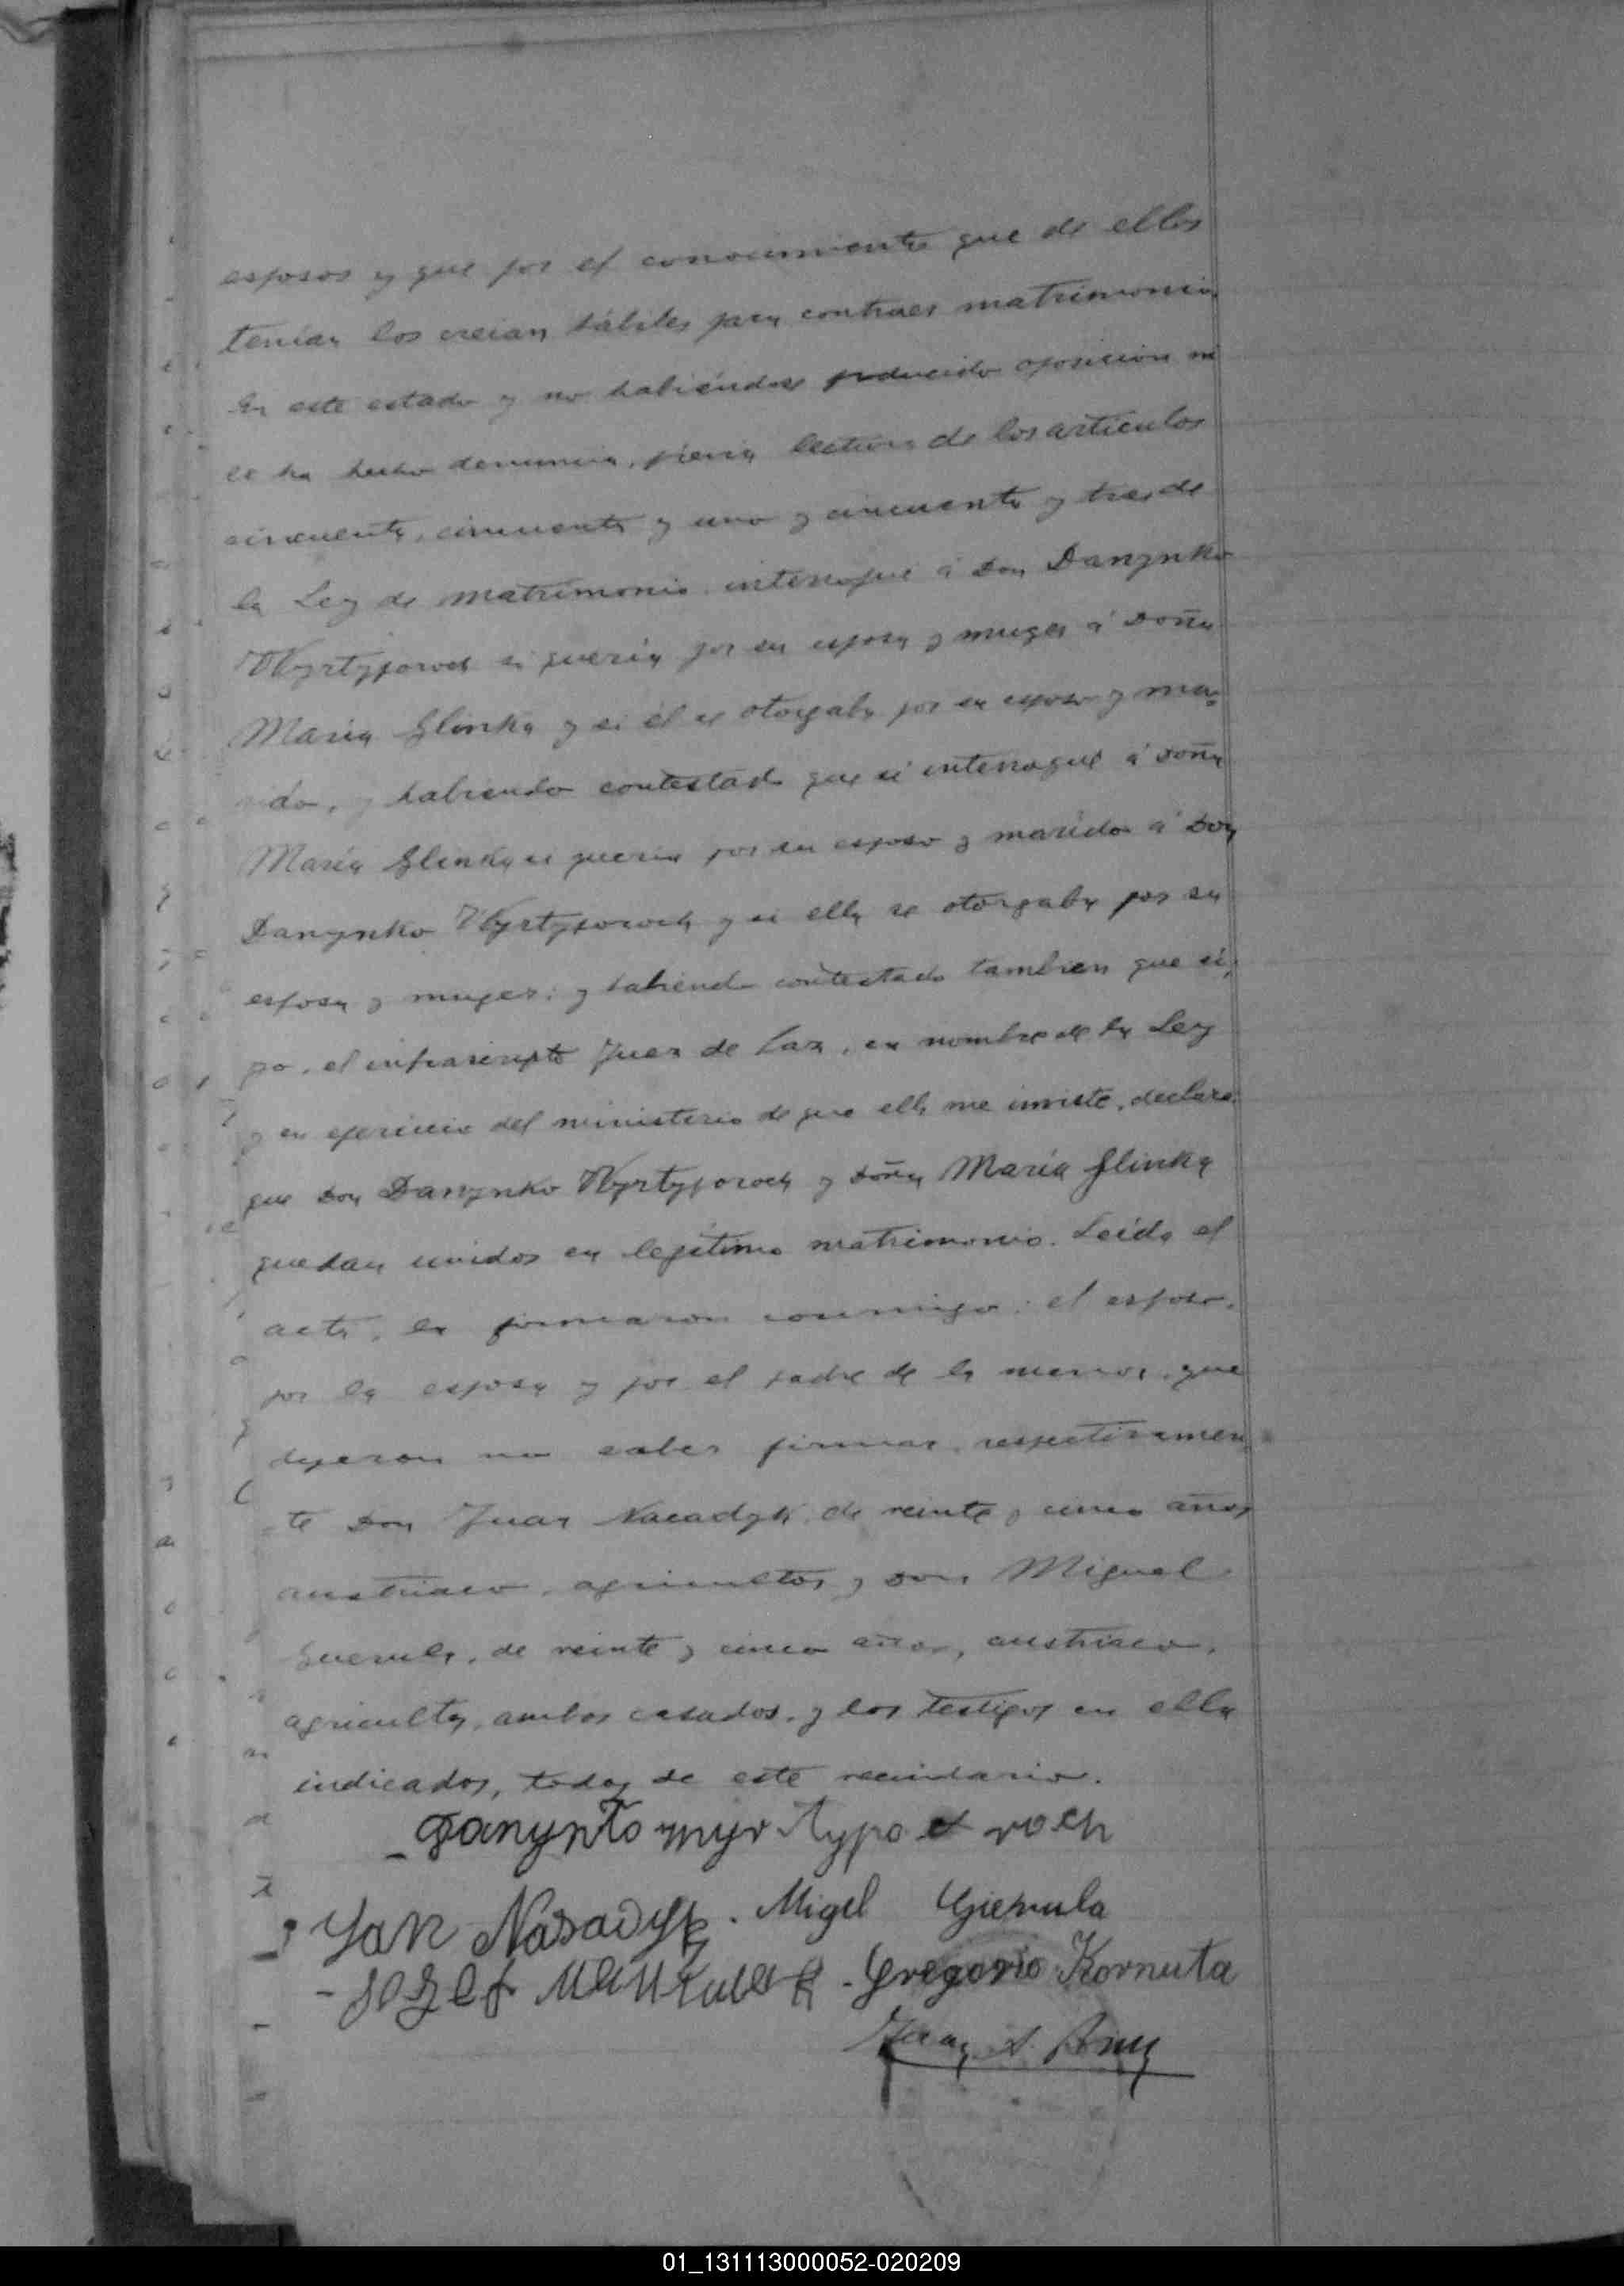 esposos y que por el conocimiento que de ellos
tenían los creian hábiles para contraer matrimonio
En este estado y no habiéndose producido oposicion ni
se ha hecho denuncia, prévia lectura de los artículos
cincuenta, cincuenta y uno y cincuenta y tres de
la Ley de matrimonio interrogué á Don Danynko
Wyrtyporoch si queria por su esposa y muger á Doña
María Glinka y si él se otorgaba por su esposo y ma-
rido, y habiendo contestado que si interrogué á Doña
María Glinka si queria por su esposo y marido á Don
Danynko Wyrtyporoch y si ella se otorgaba por su
esposa y muger; y habiendo contestado tambien que si,
yo, el infrascripto Juez de Paz, en nombre de la Ley
y en ejercicio del ministerio de que ella me inviste, declaro
que Don Danynko Wyrtyporoch y Doña María Glinka
quedan unidos en legítimo matrimonio. Leida el
acta, la firmaron conmigo: el esposo,
por la esposa y por el padre de la menor, que
dijeron no saber firmar, respectivamen
te Don Juan Nacadyk, de veinte y cinco años
austriaco, agricultor, y Don Miguel
de veinte y cinco años, austriaco,
agricultor, ambos casados, y los testigos en ella
indicados, todos de este vecindario.
Danynko myr typo roch
Jan Nasadyk. Migel Gierula
Jozef Gregorio Kornuta
Juan
01_131113000052-020209